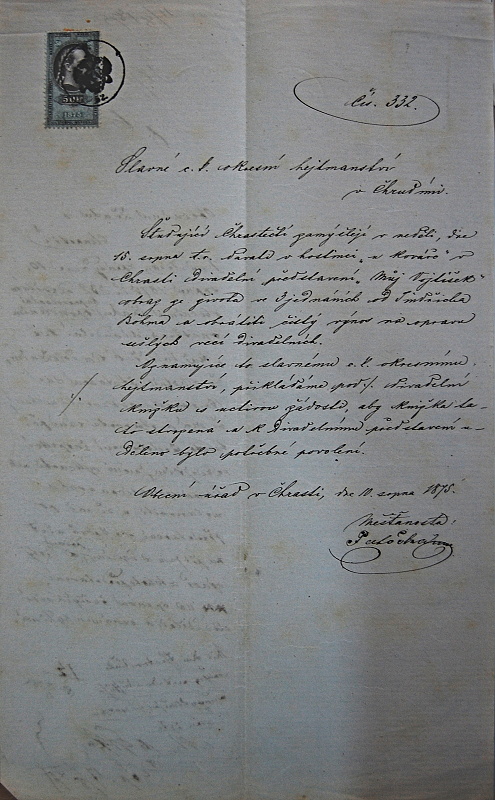 50 kr
1875
Čís. 332.
Slavné c. k. okresní hejtmanství
v Chrudimi.
Studující Chrastečtí zamýšlejí v neděli, dne
15. srpna t.r. dávati v hostinci „u Kovářů“ v
Chrasti divadelní představení „Můj Vojtíšek“
obraz ze života ve 3 jednáních od Jindřicha
Böhma a obrátiti čistý výnos na opravu
sešlých věcí divadelních.
Oznamujíce to slavnému c. k. okresnímu
hejtmanství, přikládáme pod ·/. divadelní
knížku s uctivou žádostí, aby knížka ta-
to stvrzená a k divadelnímu představení u-
děleno bylo potřebné povolení.
·/.
Obecní úřad v Chrasti, dne 10. srpna 1875.
Měšťanosta: